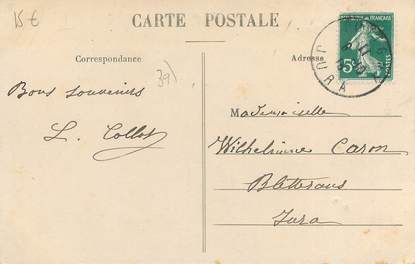 15 €
CARTE POSTALE
Correspondance
Adresse
39)
Bons souvenirs
L. Collot
Mademoiselle
Wilhelmine Caron
Bletterans
Jura
RÉPUBLIQUE FRANÇAISE
5c
POSTES
JURA